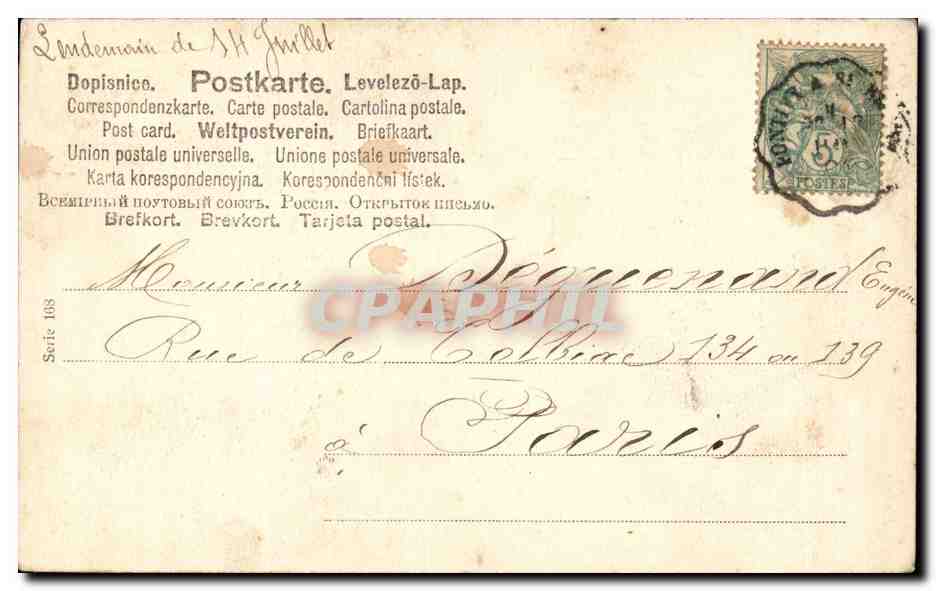 Lendemain de 14 Juillet
Dopisnice. Postkarte. Levelezö-Lap.
Correspondenzkarte. Carte postale. Cartolina postale.
Post card. Weltpostverein. Briefkaart.
Union postale universelle. Unione postale universale.
Karta korespondencyjna. Korespondenční lístek.
Всемірный почтовый союзъ. Россія. Открытое письмо.
Brefkort. Brevkort. Tarjeta postal.
5
POSTES
Monsieur Déguenand Eugène
CPAPHIL
Rue de Tolbiac 134 ou 139
à Paris
Serie 168